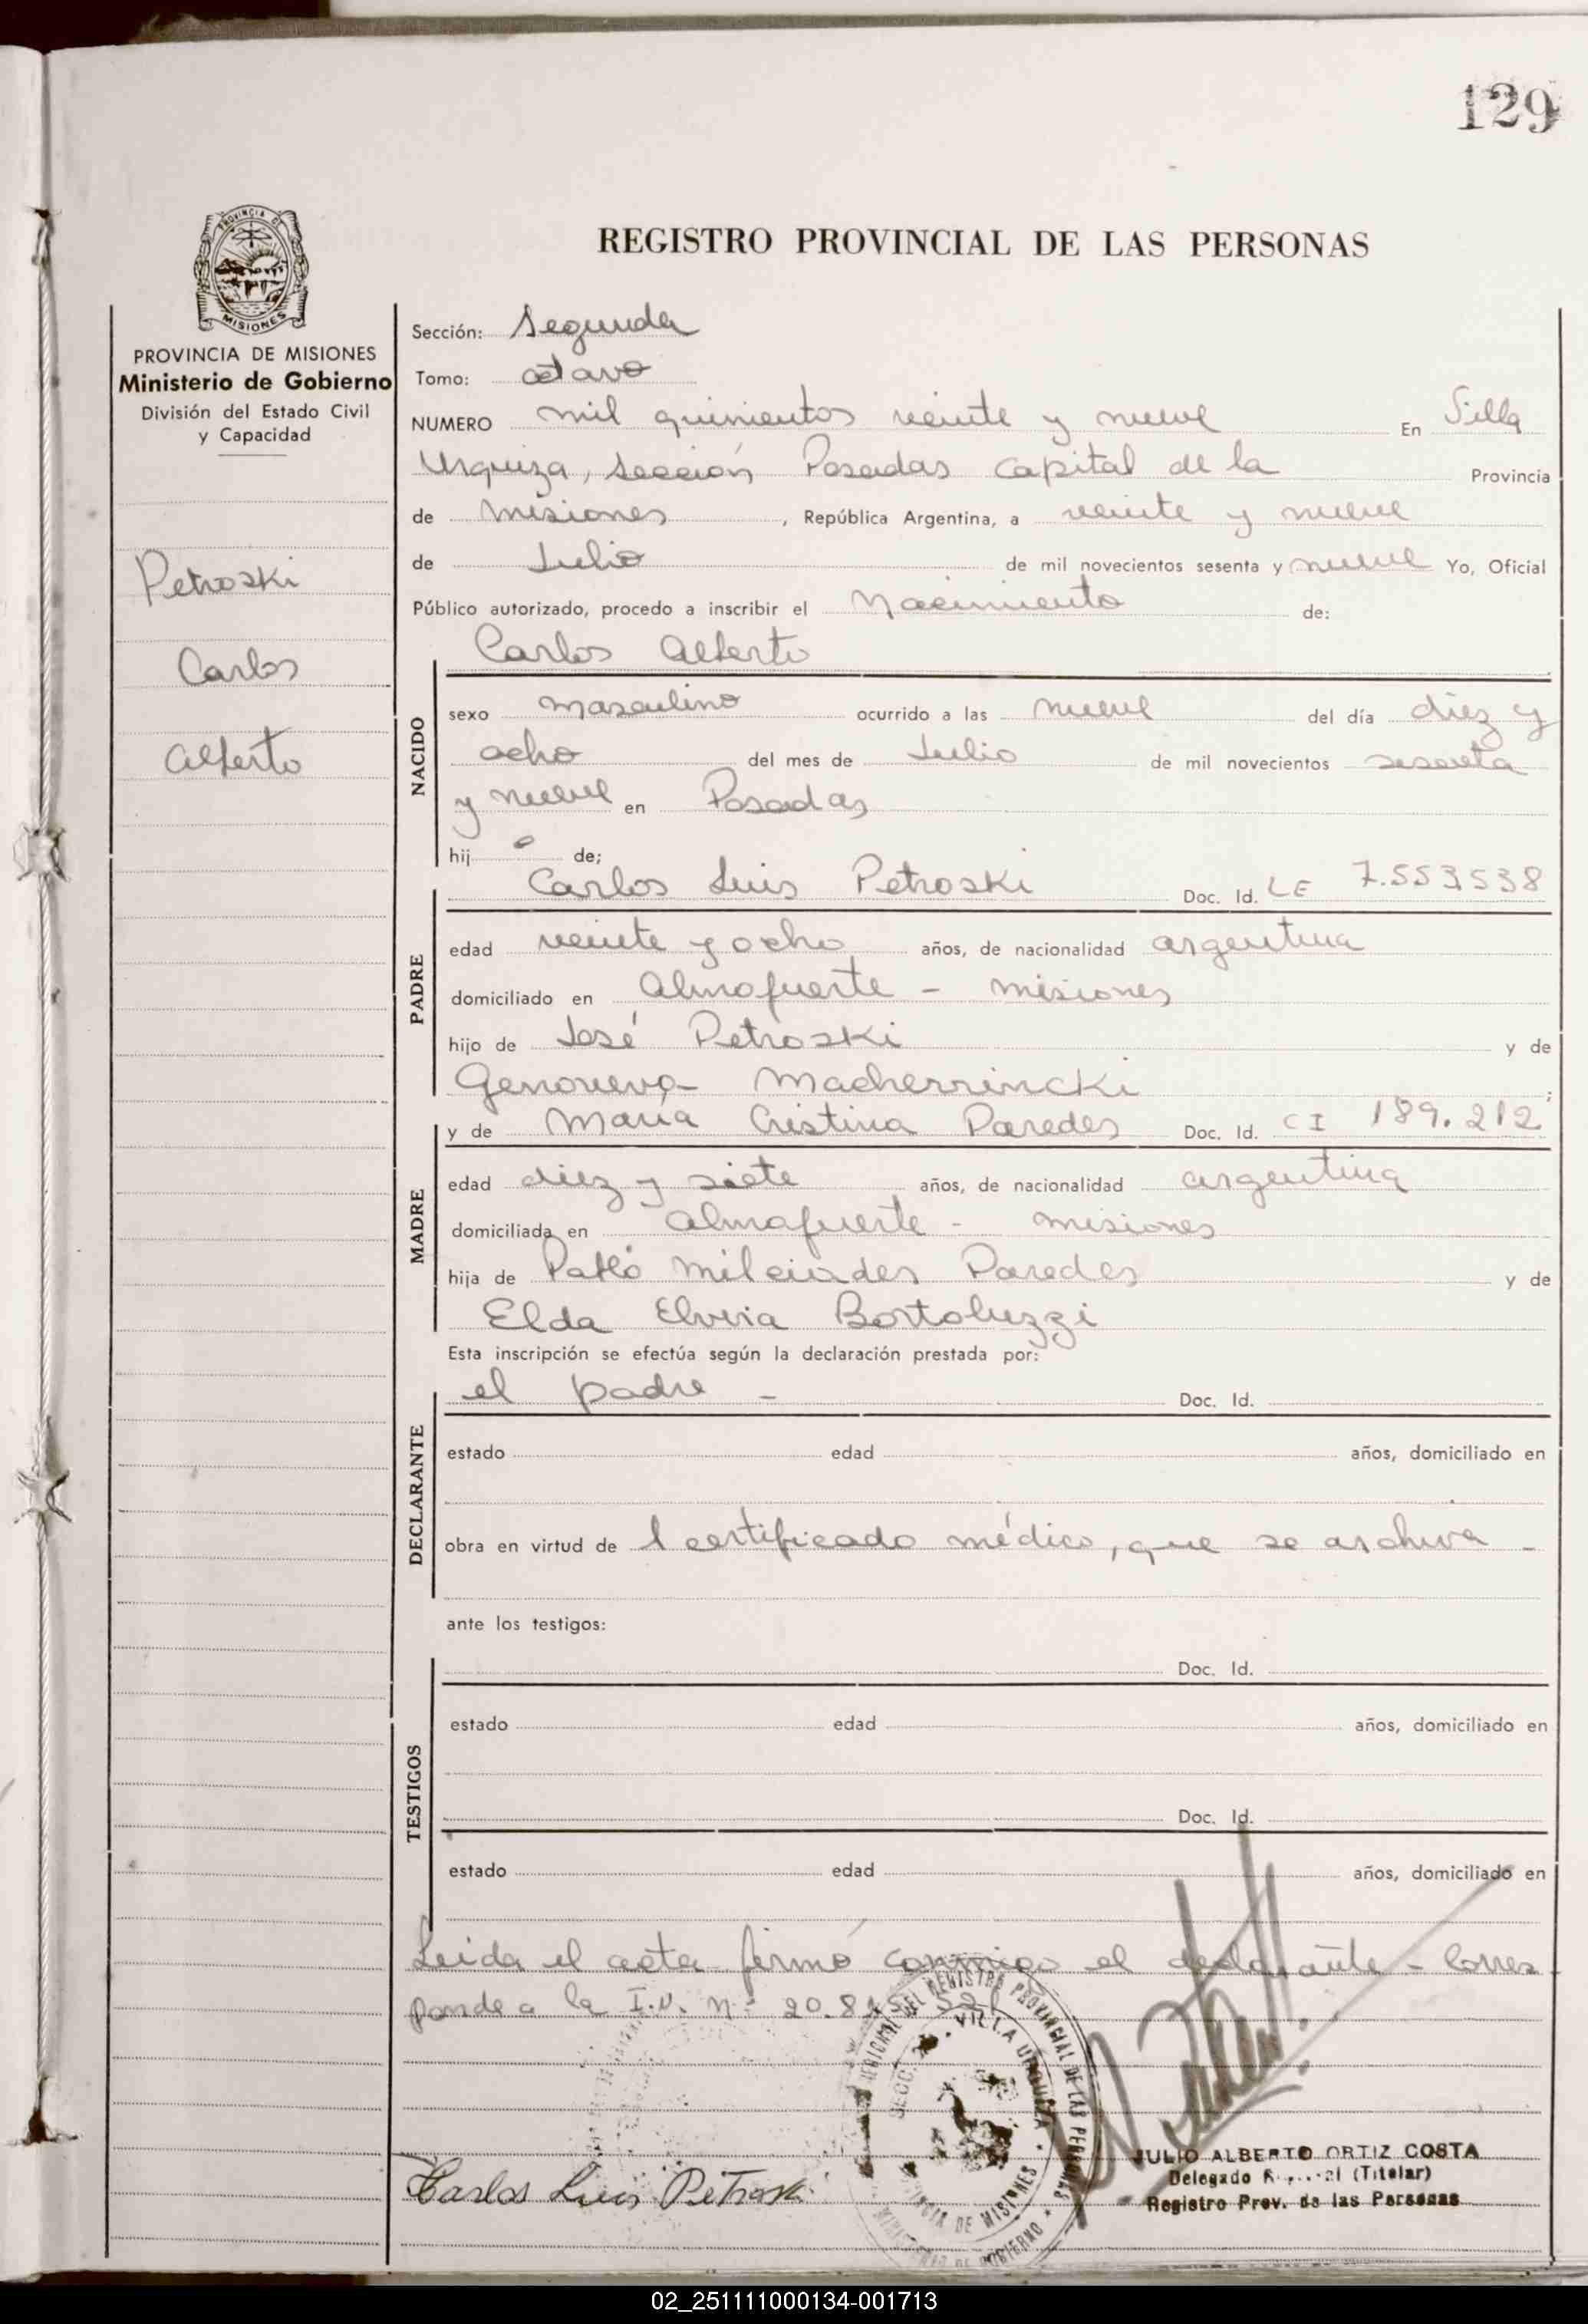 129
PROVINCIA DE
MISIONES
PROVINCIA DE MISIONES
Ministerio de Gobierno
División del Estado Civil
y Capacidad
Petroski
Carlos
Alberto
REGISTRO PROVINCIAL DE LAS PERSONAS
Sección: Segunda
Tomo: octavo
NUMERO mil quinientos veinte y nueve En Villa
Urquiza, sección Posadas capital de la Provincia
de misiones, República Argentina, a veinte y nueve
de Julio de mil novecientos sesenta y nueve Yo, Oficial
Público autorizado, procedo a inscribir el Nacimiento de:
Carlos Alberto
NACIDO
sexo masculino ocurrido a las nueve del día diez y
ocho del mes de Julio de mil novecientos sesenta
y nueve en Posadas
hij o de;
Carlos Luis Petroski Doc. Id. LE 7.553538
PADRE
edad veinte y ocho años, de nacionalidad argentina
domiciliado en Almafuerte - misiones
hijo de José Petroski y de
Genoveva Macherrincki ;
y de María Cristina Paredes Doc. Id. CI 189.212
MADRE
edad diez y siete años, de nacionalidad argentina
domiciliada en Almafuerte - misiones
hija de Pablo Milciades Paredes y de
Elda Elvira Bortoluzzi
Esta inscripción se efectúa según la declaración prestada por:
el padre - Doc. Id.
DECLARANTE
estado edad años, domiciliado en
obra en virtud de 1 certificado médico, que se archiva -
ante los testigos:
Doc. Id.
TESTIGOS
estado edad años, domiciliado en
Doc. Id.
estado edad años, domiciliado en
Leida el acta firmó conmigo el declarante - Corres
ponde a la I.N. Nº 20.8
REGISTRO PROVINCIAL DE LAS PERSONAS
VILLA URQUIZA
PROVINCIA DE MISIONES
MINISTERIO DE GOBIERNO
Carlos Luis Petroski
JULIO ALBERTO ORTIZ COSTA
Delegado (Titular)
Registro Prov. de las Personas
02_251111000134-001713